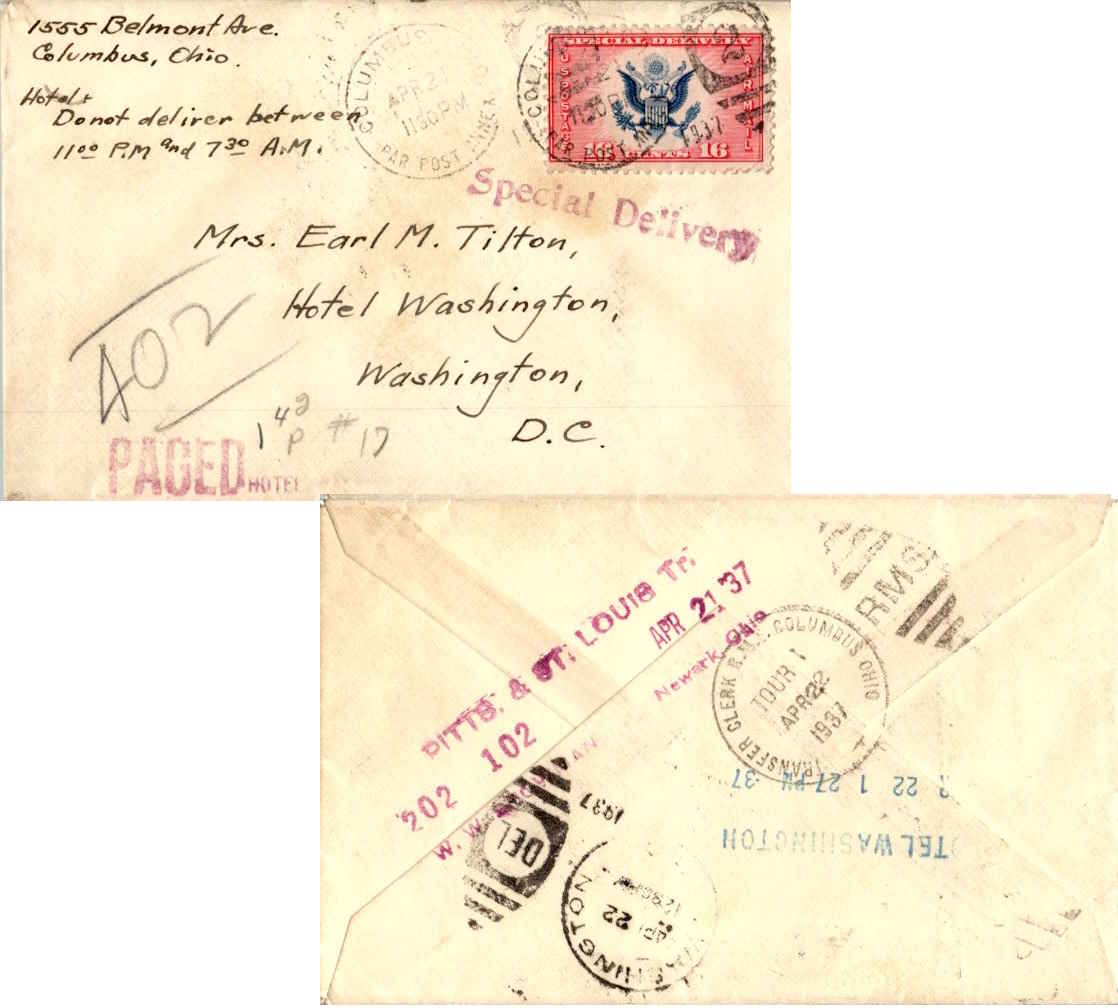 1555 Belmont Ave.
Columbus, Ohio.
Hotel:
Do not deliver between
11 00 P.M and 7 30 A.M.
COLUMBUS
APR 21
11 30 PM
PAR POST ANNEX
SPECIAL DELIVERY
U.S. POSTAGE
AIR MAIL
16 CENTS 16
COLUM
11 30 P
PAR POST ANNEX
1937
Special Delivery
Mrs. Earl M. Tilton,
Hotel Washington,
Washington,
D.C.
402
1 4 2 P #17
PAGED HOTEL
PITTS. & ST. LOUIS Tr.
APR 21 '37
Newark, Ohio
202 102
W. W.
RMS
TRANSFER CLERK R.M.S. COLUMBUS OHIO
TOUR 1
APR 22
1937
22 1 27 PM '37
TEL WASHINGTON
DEL
1937
WASHINGTON
APR 22